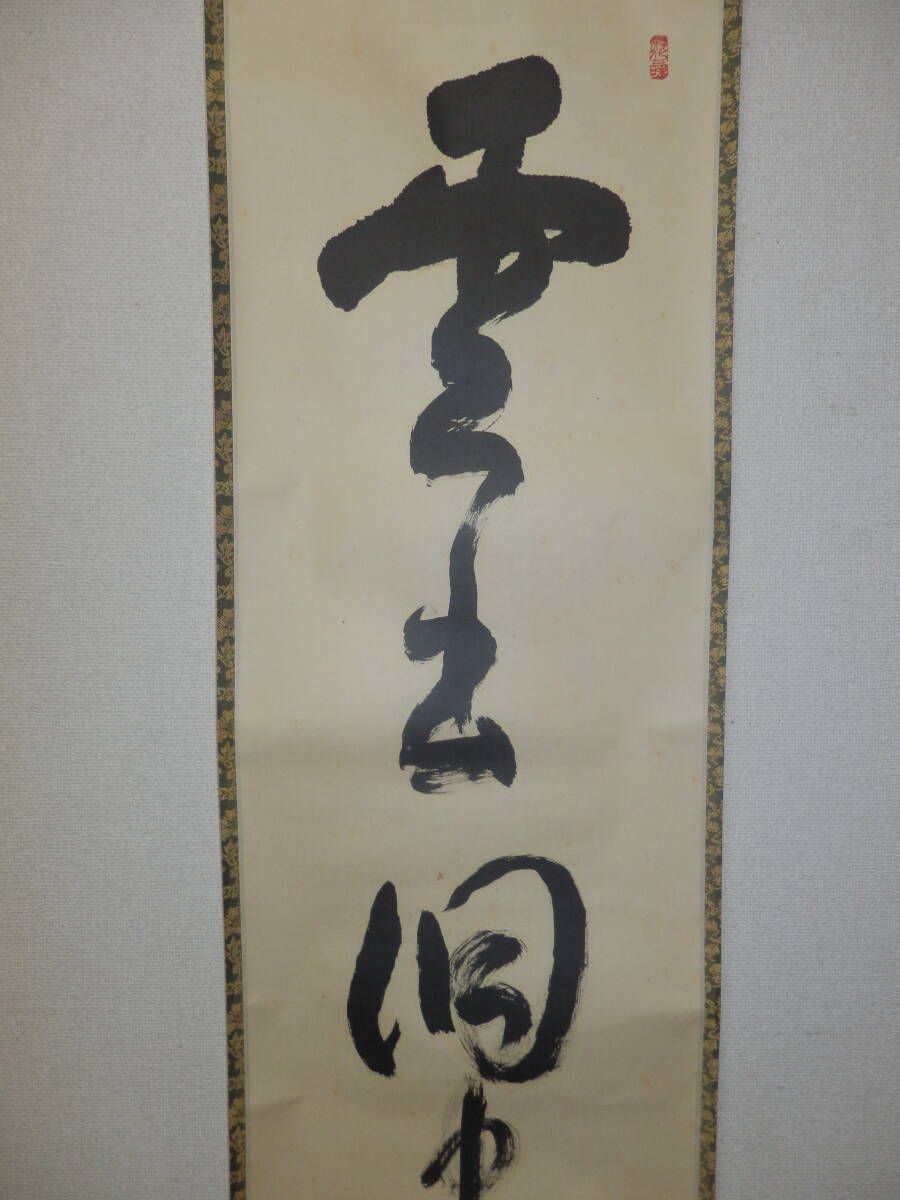 雲出洞中